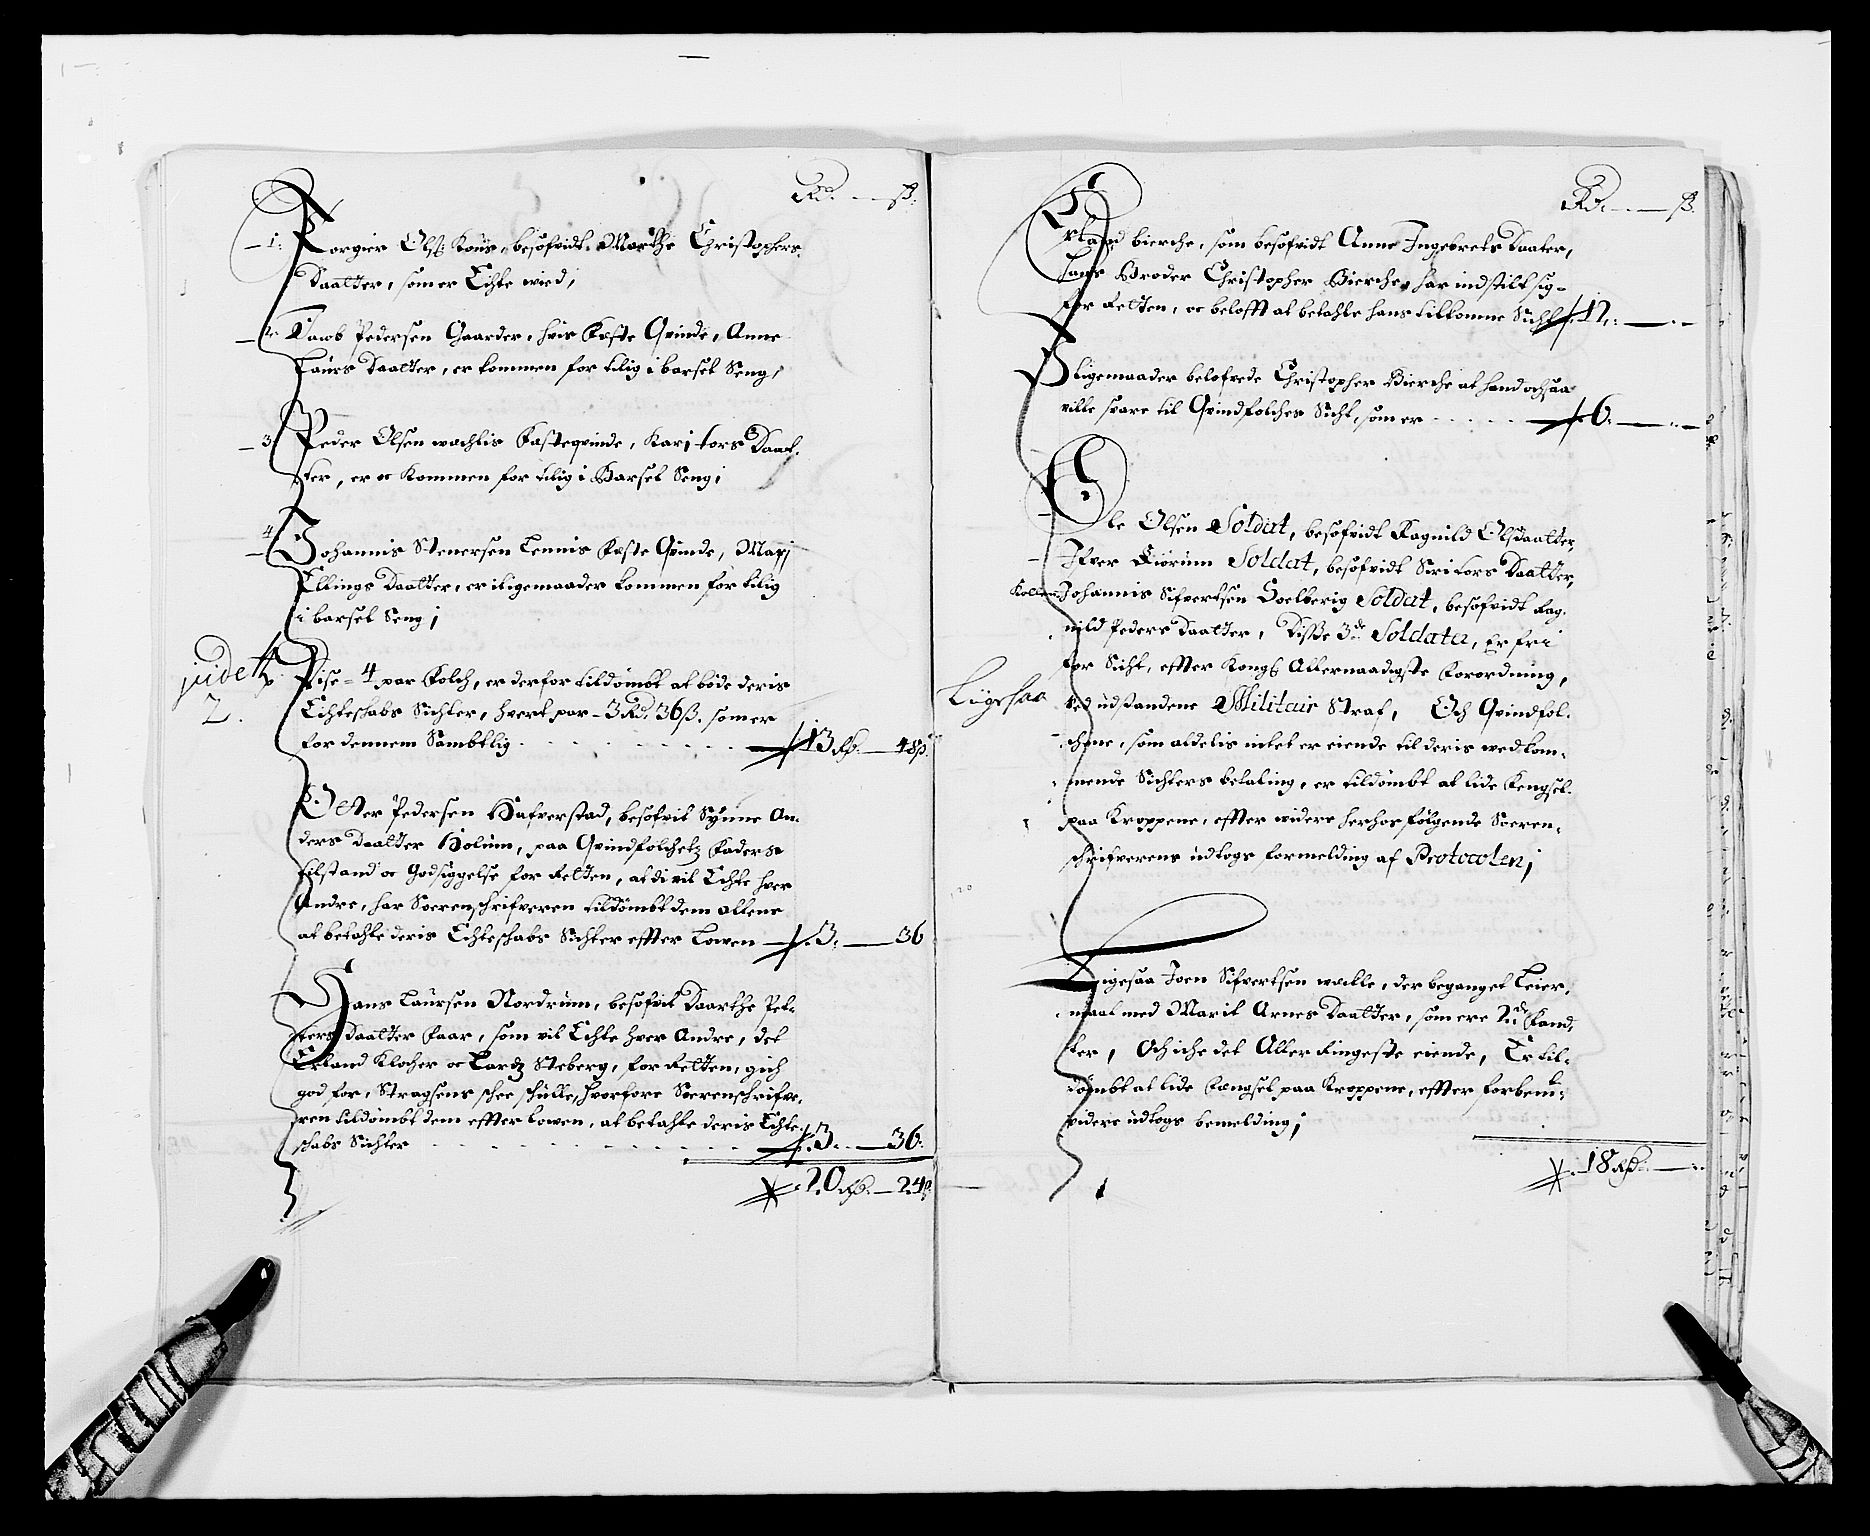 Rd. — ß.
1. Torgier Olsß: Kous, besofvidt. Marthe Christophers
Daatter, som er Echte wied;
2. Jacob Pedersen Gaarder, hvis Fæste Qvinde, Anne
Laurs Daatter, er kommen for tilig i barsel Seng;
3 Peder Olsen wachlis Fæsteqvinde, Kari tors Daat-
ter, er oc Kommen for tilig i Barsel Seng;
4 Johannis Stenersen Tennis Fæste Qvinde, Mari
Ellings Daatter, er iligemaader kommen for tilig
i barsel Seng;
2.
Disse 4 par Folch, er derfor tildømbt at bøde deris
Echteschabs Sichter, hvert par 3 Rd. 36 ß. som er
for dennem Sambtlig - - - 13 Rd. — 48 ß.
Peter Pedersen Hafverstad, besofvit Synne An-
ders daatter Holum, paa Qvindfolchetz Faders
tilstand oc Godsiggelse for Retten, at di vil Echte hver
Andre, har Sorenschrifveren tildømbt dem allene
at betahle deris Echteschabs Sichter effter Lowen — 3. — 36
Hans Laursen Nordrum, besofvit Daarthe Pet-
ters Daatter Faar, som vil Echte hver Andre, det
Erland Klocher oc Lardz Steberg, for Retten, gich
god for, Stragsens schee schulle, hvorfore Sorenschrifve-
ren tildømbt dem effter lowen, at betahle deris Echte-
schabs Sichter - - - 3. — 36.
20 Rd. — 24 ß
Rd. — ß.
Erland bierche, som besofvidt Anne Ingebrets Daater,
hans Broder Christopher Bierche, har indstilt sig
for Retten, oc belofft at betahle hans tilkomne Sicht 12. —
Iligemaader belofvede Christopher Bierche at hand ochsaa
ville svare til Qvindfolches Sicht, som er - - - 6. —
Ole Olsen Soldat, besofvidt Ragnild Olsdaatter,
Ifver Soldat, besofvidt Siri tors Daatter,
Johannis Sifvertsen Soelberig Soldat, besofvidt Rag-
nild Peders Daatter, Disse 3de Soldater, Er fri
for Sicht, effter Kongl. Allernaadigste Forordning,
ved udstandene Militair Straf, Och Qvindfol-
chene, som aldelis intet er eiende til deris wedkom-
mende Sichters betaling, er tildømbt at lide Fengsel
paa Kroppene, effter widere herhos følgende Soren-
schrifverens udtogs formelding af Protocolen;
Ligesaa
Ligesaa Joen Sifvertsen walle, der beganget Leier-
maal med Marit Arnes Daatter, som ere
ter, Och iche det Aller Ringeste eiende, Er til-
dømbt at lide Fængsel paa Kroppene, effter forbem:
videre udtogs bemelding;
18 Rd. —